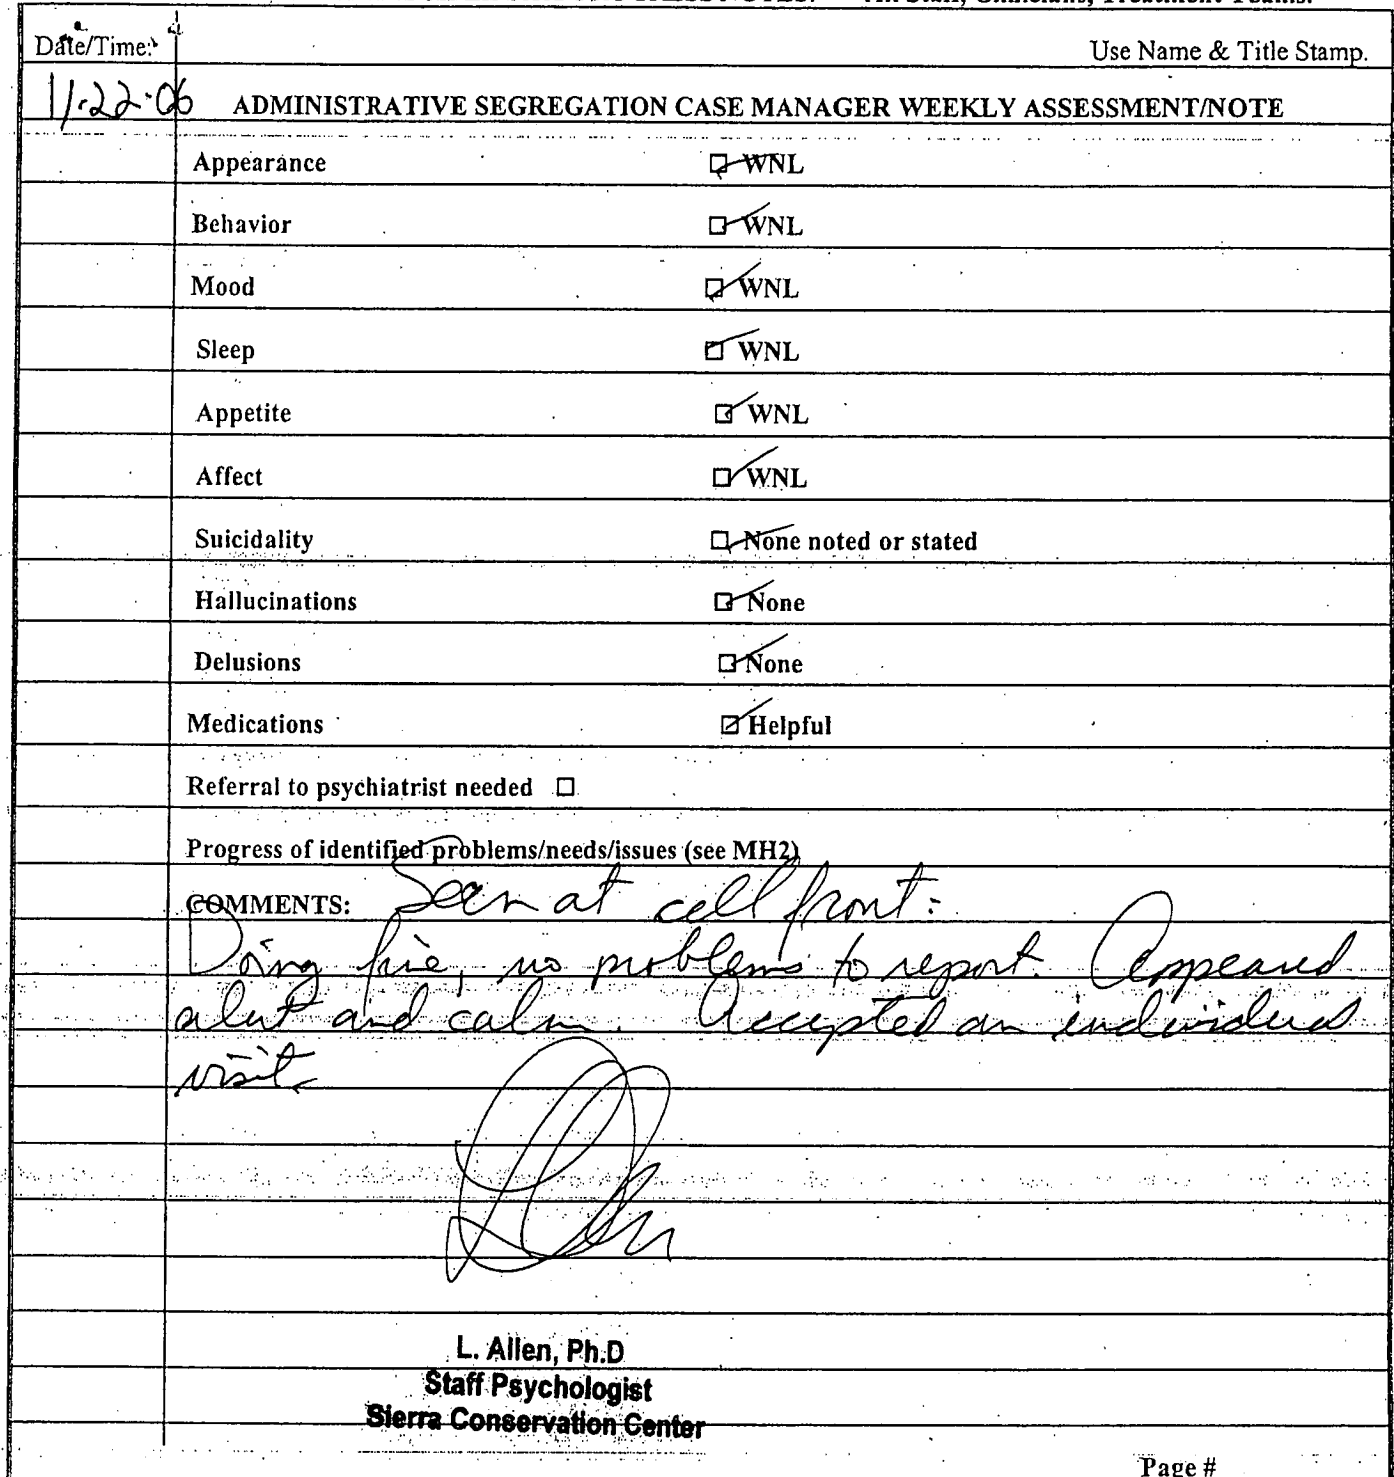 NOTES: All Staff, Clinicians, Treatment Teams.
Date/Time: Use Name & Title Stamp.
11-22-06 ADMINISTRATIVE SEGREGATION CASE MANAGER WEEKLY ASSESSMENT/NOTE
Appearance ☑ WNL
Behavior ☑ WNL
Mood ☑ WNL
Sleep ☑ WNL
Appetite ☑ WNL
Affect ☑ WNL
Suicidality ☑ None noted or stated
Hallucinations ☑ None
Delusions ☑ None
Medications ☑ Helpful
Referral to psychiatrist needed ☐
Progress of identified problems/needs/issues (see MH2)
COMMENTS: Seen at cell front:
Doing fine, no problems to report. Appeared
alert and calm. Accepted an individual
visit.
L. Allen, Ph.D
Staff Psychologist
Sierra Conservation Center
Page #